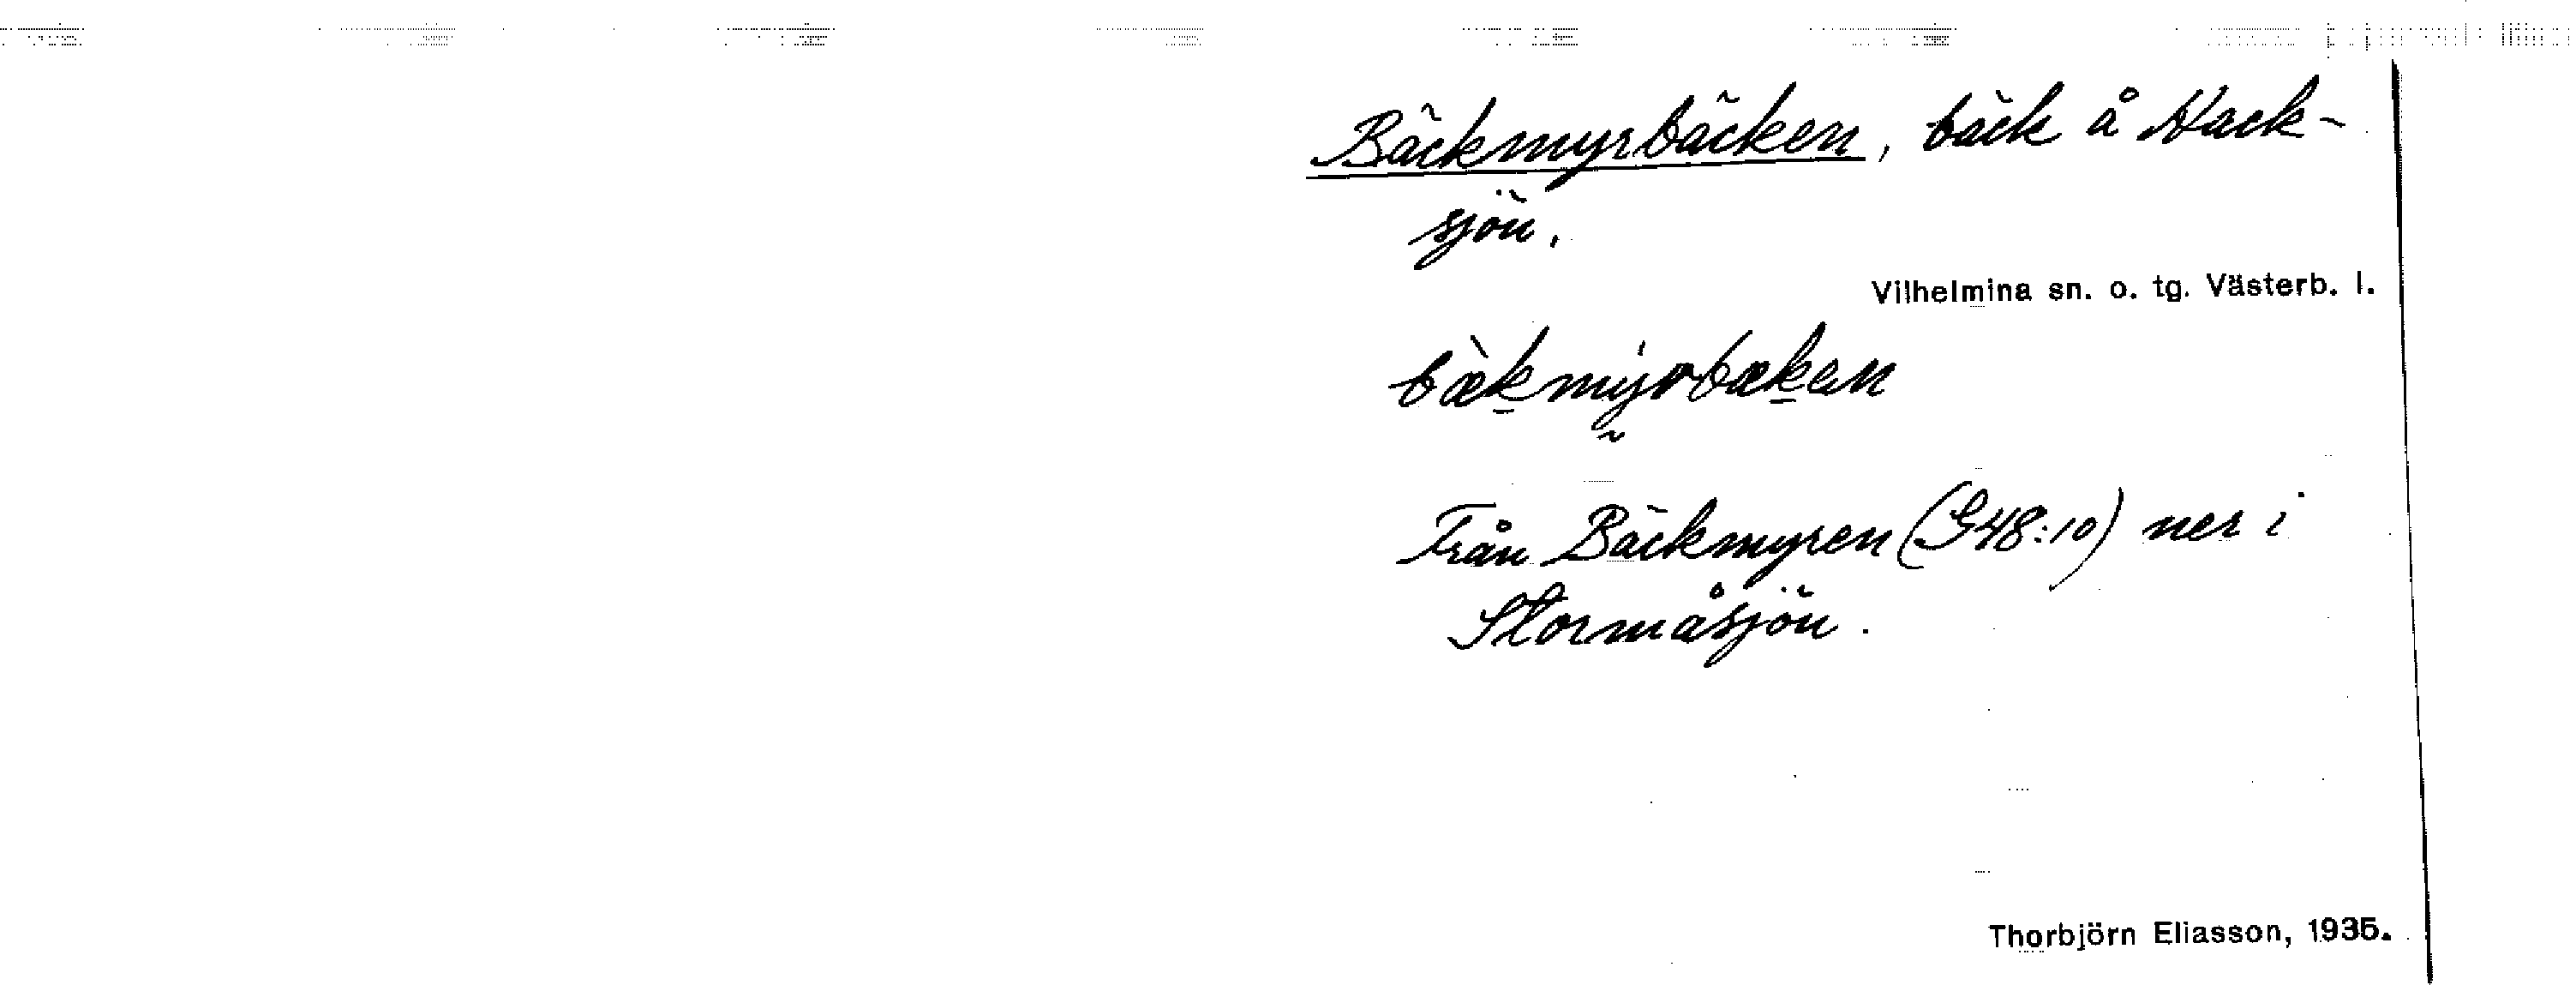 Bäckmyrbäcken, bäck å Hack-
sjön.
Vilhelmina sn. o. tg. Västerb. l.
bæ̀kmy̆́rbækan
Från Bäckmyren (G48:10) ner i
Stormåsjön.
Thorbjörn Eliasson, 1935.